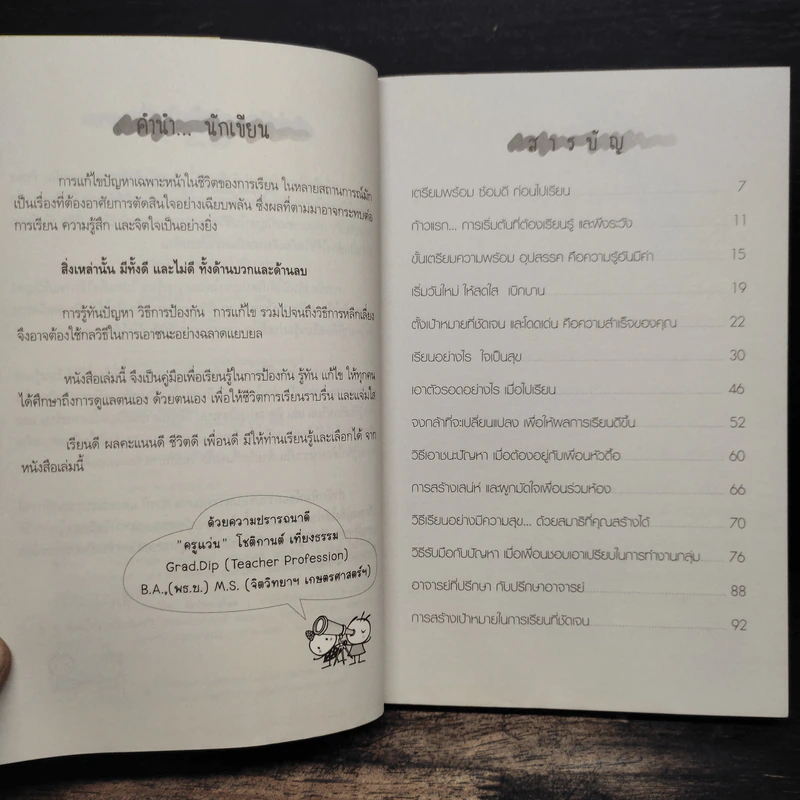 คำนำ... นักเขียน
การแก้ไขปัญหาเฉพาะหน้าในชีวิตของการเรียน ในหลายสถานการณ์มัก
เป็นเรื่องที่ต้องอาศัยการตัดสินใจอย่างเฉียบพลัน ซึ่งผลที่ตามมาอาจกระทบต่อ
การเรียน ความรู้สึก และจิตใจเป็นอย่างยิ่ง
สิ่งเหล่านั้น มีทั้งดี และไม่ดี ทั้งด้านบวกและด้านลบ
การรู้ทันปัญหา วิธีการป้องกัน การแก้ไข รวมไปจนถึงวิธีการหลีกเลี่ยง
จึงอาจต้องใช้กลวิธีในการเอาชนะอย่างฉลาดแยบยล
หนังสือเล่มนี้ จึงเป็นคู่มือเพื่อเรียนรู้ในการป้องกัน รู้ทัน แก้ไข ให้ทุกคน
ได้ศึกษาถึงการดูแลตนเอง ด้วยตนเอง เพื่อให้ชีวิตการเรียนราบรื่น และแจ่มใส
เรียนดี ผลคะแนนดี ชีวิตดี เพื่อนดี มีให้ท่านเรียนรู้และเลือกได้ จาก
หนังสือเล่มนี้
ด้วยความปรารถนาดี
"ครูแว่น" โชติกานต์ เที่ยงธรรม
Grad.Dip (Teacher Profession)
B.A.,(พธ.บ.) M.S. (จิตวิทยาฯ เกษตรศาสตร์ฯ)
สารบัญ
เตรียมพร้อม ซ้อมดี ก่อนไปเรียน 7
ก้าวแรก... การเริ่มต้นที่ต้องเรียนรู้ และพึงระวัง 11
ขั้นเตรียมความพร้อม อุปสรรค คือความรู้อันมีค่า 15
เริ่มวันใหม่ ให้สดใส เบิกบาน 19
ตั้งเป้าหมายที่ชัดเจน และโดดเด่น คือความสำเร็จของคุณ 22
เรียนอย่างไร ใจเป็นสุข 30
เอาตัวรอดอย่างไร เมื่อไปเรียน 46
จงกล้าที่จะเปลี่ยนแปลง เพื่อให้ผลการเรียนดีขึ้น 52
วิธีเอาชนะปัญหา เมื่อต้องอยู่กับเพื่อนหัวดื้อ 60
การสร้างเสน่ห์ และผูกมัดใจเพื่อนร่วมห้อง 66
วิธีเรียนอย่างมีความสุข... ด้วยสมาธิที่คุณสร้างได้ 70
วิธีรับมือกับปัญหา เมื่อเพื่อนชอบเอาเปรียบในการทำงานกลุ่ม 76
อาจารย์ที่ปรึกษา กับปรึกษาอาจารย์ 88
การสร้างเป้าหมายในการเรียนที่ชัดเจน 92